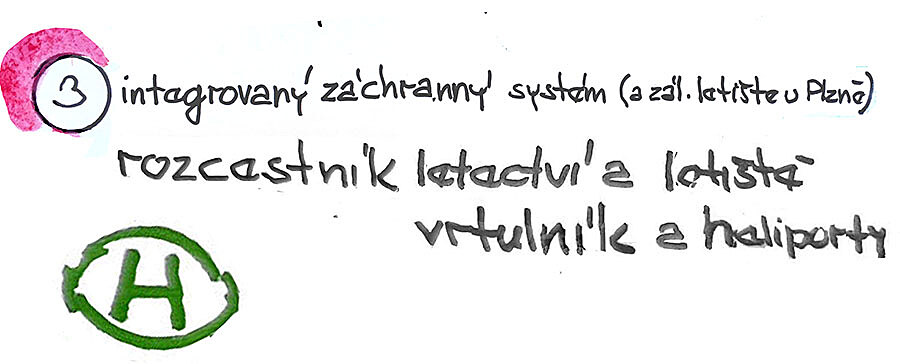 3 integrovaný záchranný systém (a zál. letiště u Plzně)
rozcastník letectví a letiště
vrtulník a heliporty
H